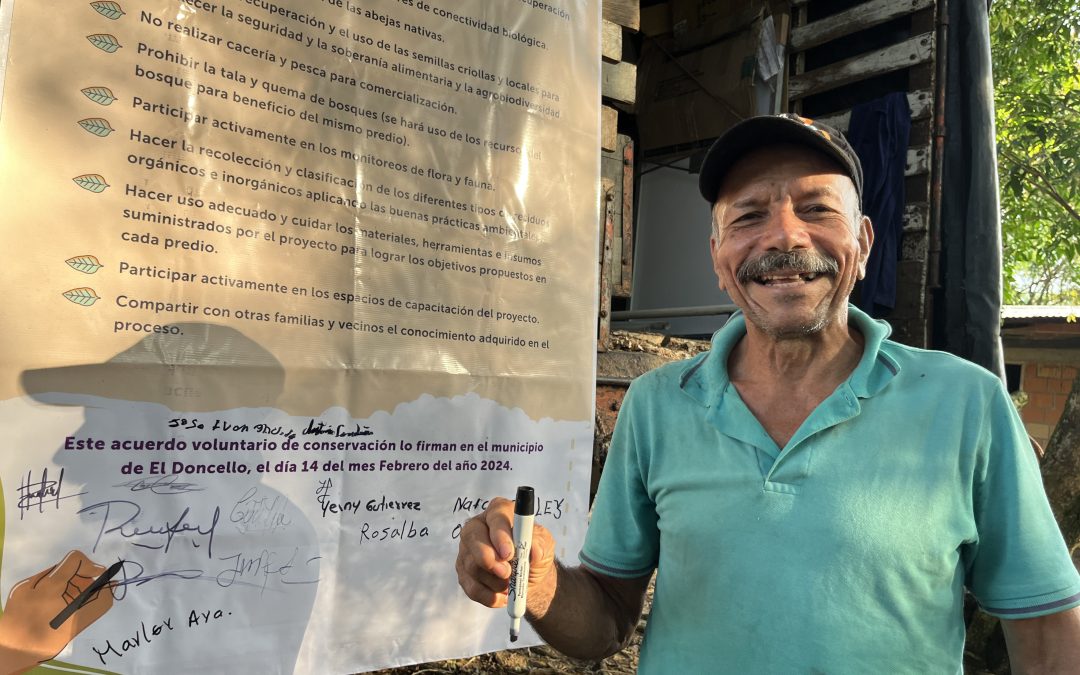 de conectividad biológica.
recuperación
de las abejas nativas.
recuperación y el uso de las semillas criollas y locales para
la seguridad y la soberanía alimentaria y la agrobiodiversidad
No realizar cacería y pesca para comercialización.
Prohibir la tala y quema de bosques (se hará uso de los recursos del
bosque para beneficio del mismo predio).
Participar activamente en los monitoreos de flora y fauna.
Hacer la recolección y clasificación de los diferentes tipos de residuos
orgánicos e inorgánicos aplicando las buenas prácticas ambientales.
Hacer uso adecuado y cuidar los materiales, herramientas e insumos
suministrados por el proyecto para lograr los objetivos propuestos en
cada predio.
Participar activamente en los espacios de capacitación del proyecto.
Compartir con otras familias y vecinos el conocimiento adquirido en el
proceso.
Este acuerdo voluntario de conservación lo firman en el municipio
de El Doncello, el día 14 del mes Febrero del año 2024.
Yenny Gutierrez
Rosalba
Marlor Ara.